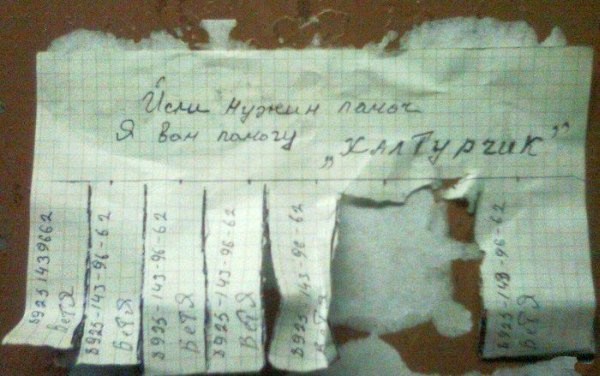 Исли нужин памоч
Я вам памогу „ХАЛТУРЧИК”
89251439662
ВЕТЯ
8925-143-96-62
ВЕТЯ
8925-143-96-62
ВЕТЯ
8925-143-96-62
ВЕТЯ
8925-143-96-62
ВЕТЯ
8925-143-96-62
ВЕТЯ